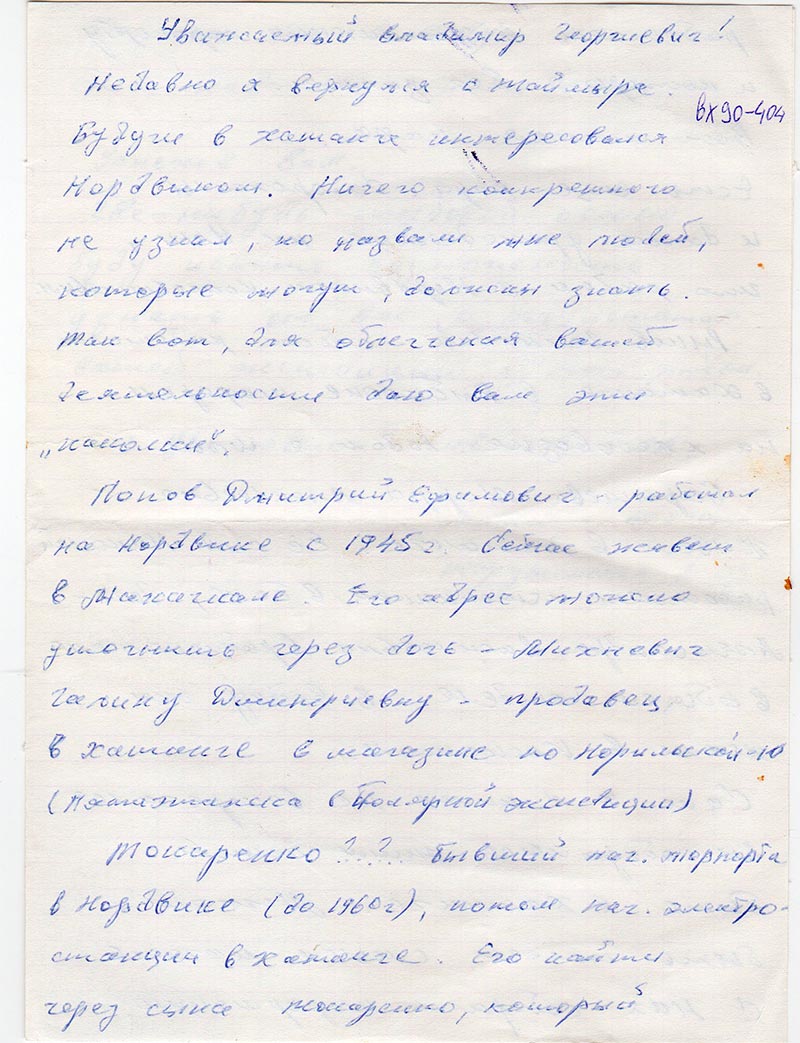 Уважаемый Владимир Георгиевич!
Недавно я вернулся с Таймыра.
вх 90-404
Будучи в Хатанге интересовался
Нордвиком. Ничего конкретного
не узнал, но назвали мне людей,
которые могут, должны знать.
Так вот, для облегчения вашей
деятельности даю вам эти
„наколки".
Попов Дмитрий Ефимович - работал
на Нордвике с 1945г. Сейчас живет
в Махачкале. Его адрес можно
уточнить через дочь - Михневич
Галину Дмитриевну - продавец
в Хатанге в магазине по Норильской-10
в Полярной экспедиции)
Токаренко ?.?.. бывший нач. морпорта
в Нордвике (до 1960г), потом нач. электро-
станции в Хатанге. Его найти
через сына Токаренко, который